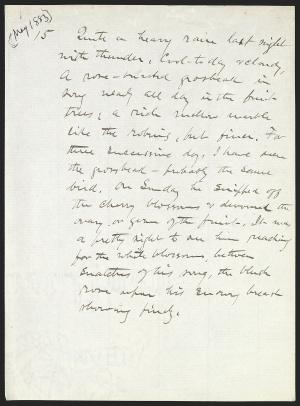 (May 1883)
15
Quite a heavy rain last night
with thunder, Cool to-day & cloudy,
A rose-breasted grosbeak in
song nearly all day in the fruit
trees; a rich mellow warble
like the robins, but finer. For
three successive days I have seen
the grosbeak - probably the same
bird. On Sunday he snipped off
the cherry blossoms & devoured the
ovary, or germ of the fruit. It was
a pretty sight to see him reaching
for the white blossoms, between
snatches of his song, the blush
rose upon his snowy breast
showing finely.